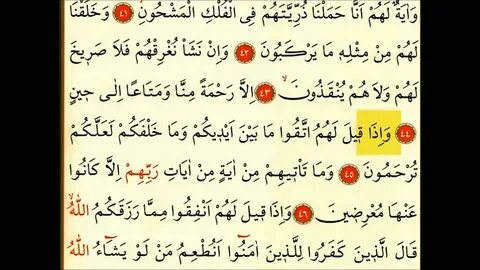 وَاٰيَةٌ لَهُمْ اَنَّا حَمَلْنَا ذُرِّيَّتَهُمْ فِي الْفُلْكِ الْمَشْحُونِ ﴿٤١﴾ وَخَلَقْنَا
لَهُمْ مِنْ مِثْلِهِ مَا يَرْكَبُونَ ﴿٤٢﴾ وَاِنْ نَشَأْ نُغْرِقْهُمْ فَلَا صَرِيخَ
لَهُمْ وَلَا هُمْ يُنْقَذُونَۙ ﴿٤٣﴾ اِلَّا رَحْمَةً مِنَّا وَمَتَاعًا اِلٰى حِينٍ
﴿٤٤﴾ وَاِذَا قِيلَ لَهُمُ اتَّقُوا مَا بَيْنَ اَيْدِيكُمْ وَمَا خَلْفَكُمْ لَعَلَّكُمْ
تُرْحَمُونَ ﴿٤٥﴾ وَمَا تَأْتِيهِمْ مِنْ اٰيَةٍ مِنْ اٰيَاتِ رَبِّهِمْ اِلَّا كَانُوا
عَنْهَا مُعْرِضِينَ ﴿٤٦﴾ وَاِذَا قِيلَ لَهُمْ اَنْفِقُوا مِمَّا رَزَقَكُمُ اللّٰهُۙ
قَالَ الَّذِينَ كَفَرُوا لِلَّذِينَ اٰمَنُٓوا اَنُطْعِمُ مَنْ لَوْ يَشَٓاءُ اللّٰهُ